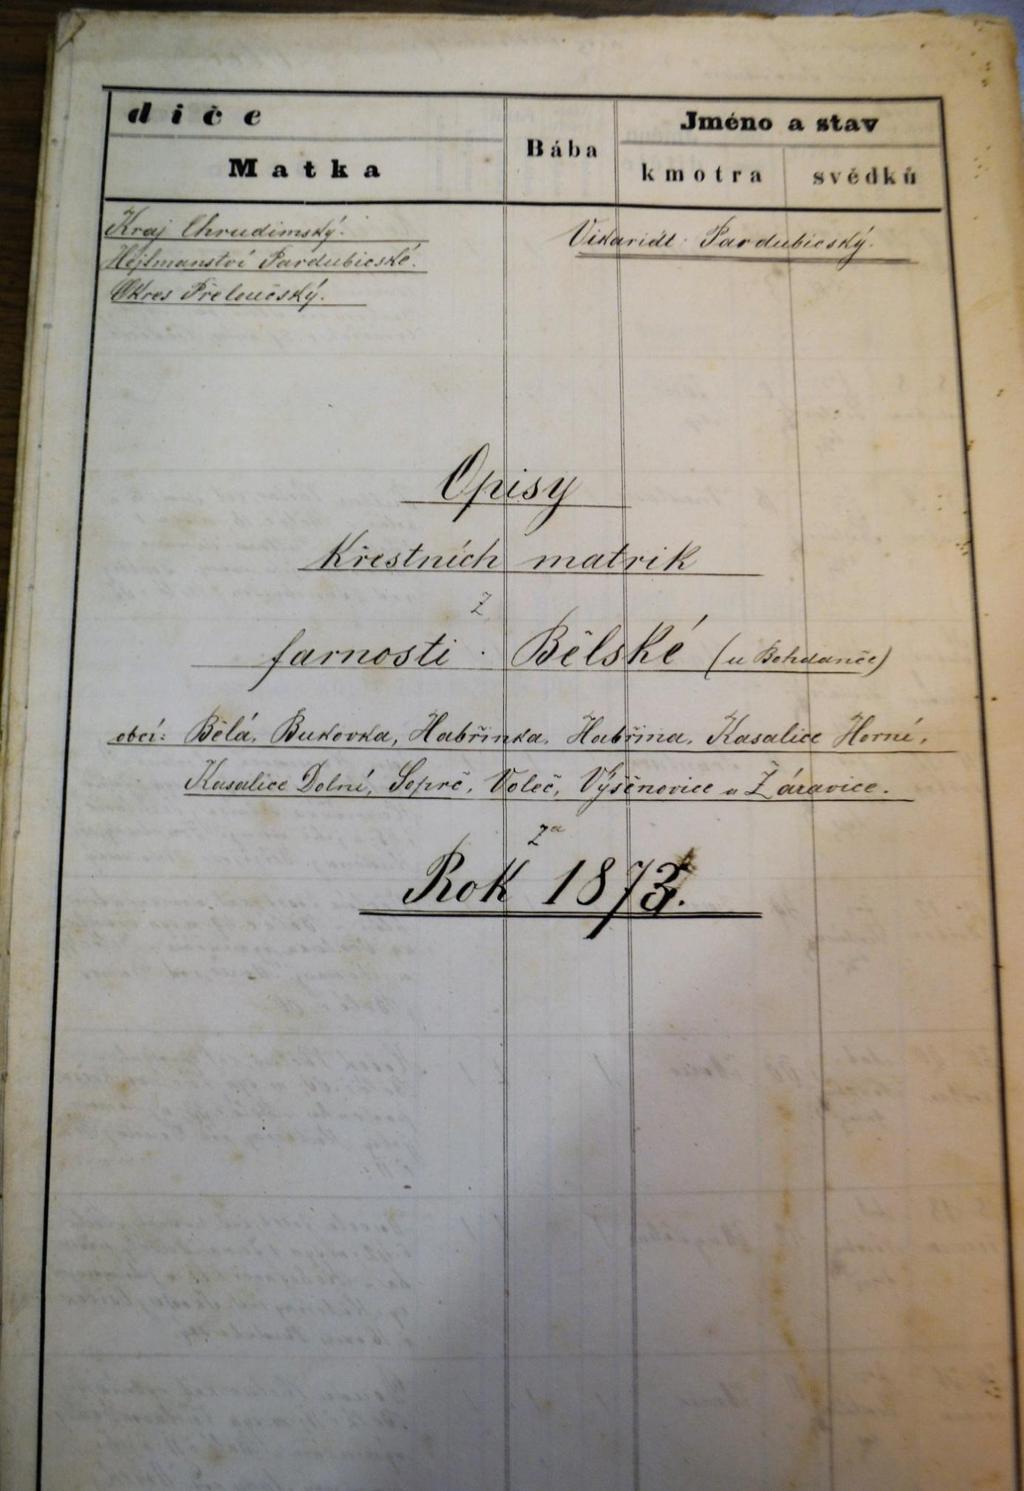 diče
Matka
Bába
Jméno a stav
kmotra
svědků
Kraj Chrudimský.
Hejtmanství Pardubické.
Okres Přeloučský.
Vikariát Pardubický.
Opisy
Křestních matrik
z
farnosti Bělské (u Bohdanče)
obcí: Bělá, Bukovka, Habřinka, Habřina, Kasalice Horní,
Kasalice Dolní, Soprč, Voleč, Výšěnovice a Žáravice.
za
Rok 1873.